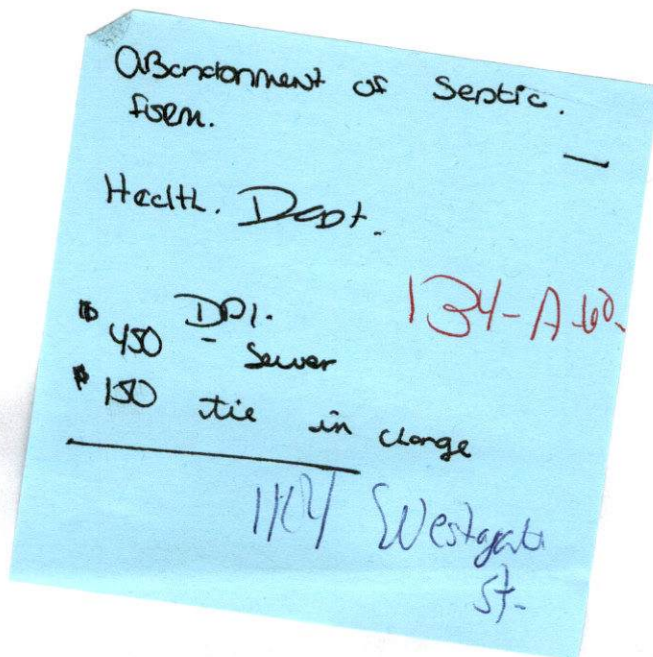 Abandonment of Septic.
form.
Health. Dept.
134-A-60-
DPI.
$450 - Sewer
$150 tie in charge
Westgate
St-